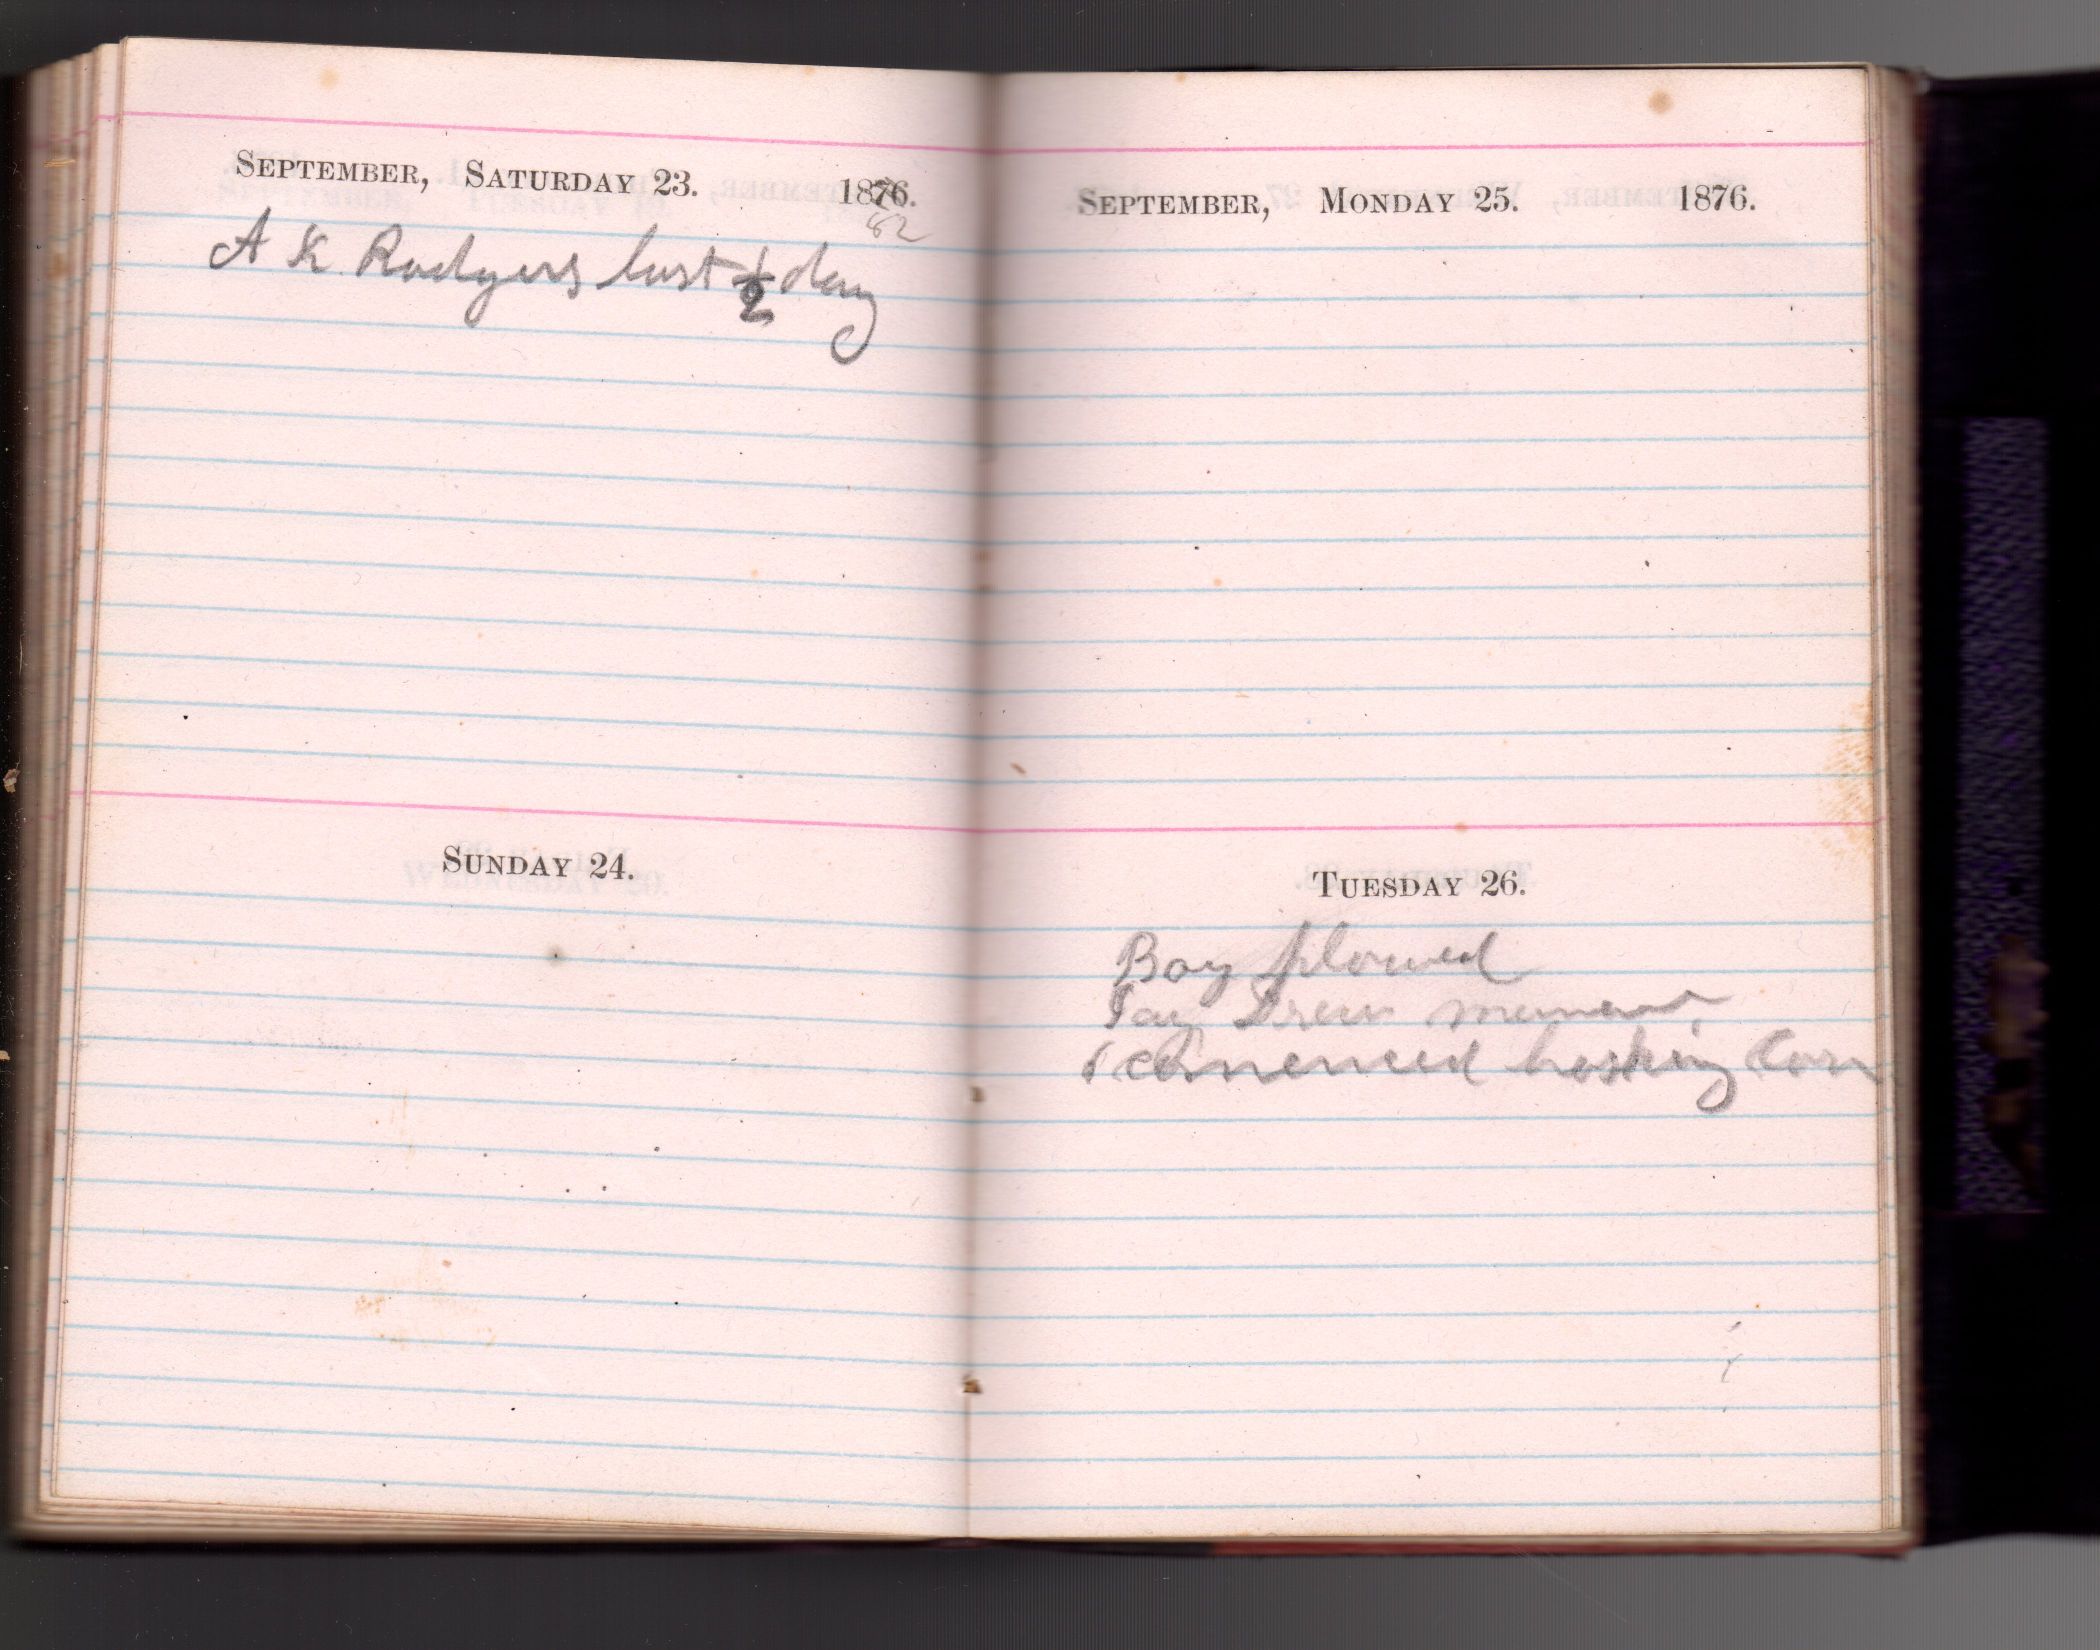 SEPTEMBER, SATURDAY 23. 1876.
82
A K Rodgers lost 1/2 day
SUNDAY 24.
SEPTEMBER, MONDAY 25. 1876.
TUESDAY 26.
Boy plowed
Jay Drew
commenced husking Corn